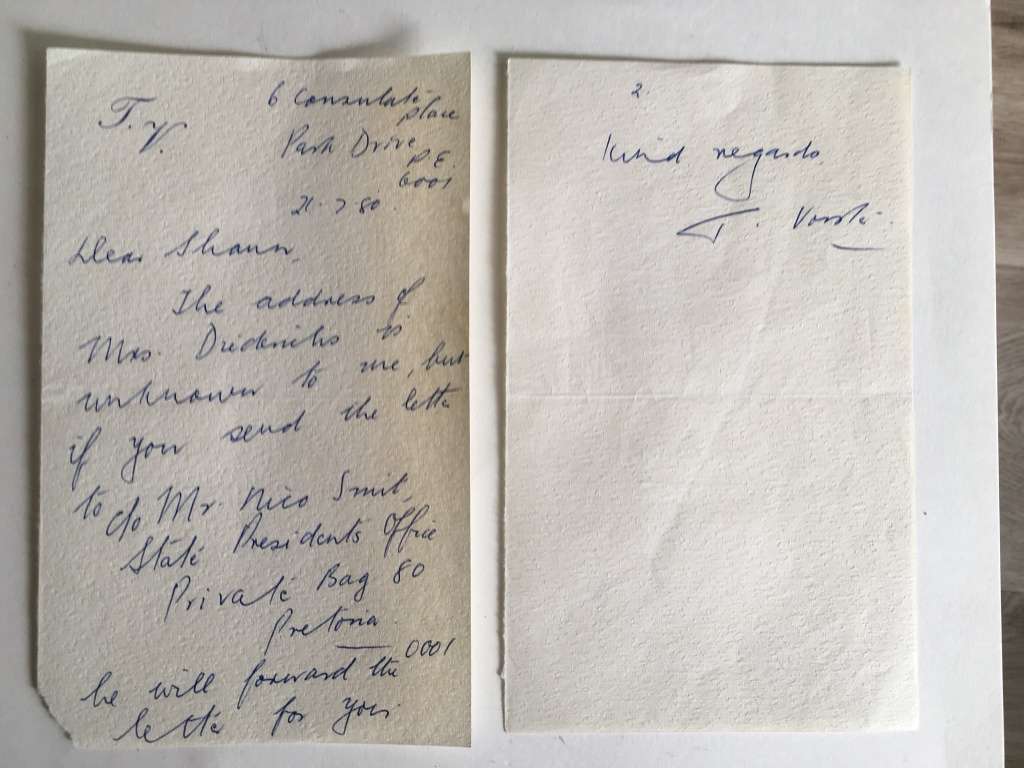 T.V.
6 Consulate
Place
Park Drive
P.E.
6001
21.7.80.
Dear Shaun,
The address of
Mrs. Diederichs is
unknown to me, but
if you send the letter
to c/o Mr. Nico Smit,
State Presidents Office
Private Bag 80
Pretoria.
0001
he will forward the
letter for you.
2.
Kind regards
T. Vorster.